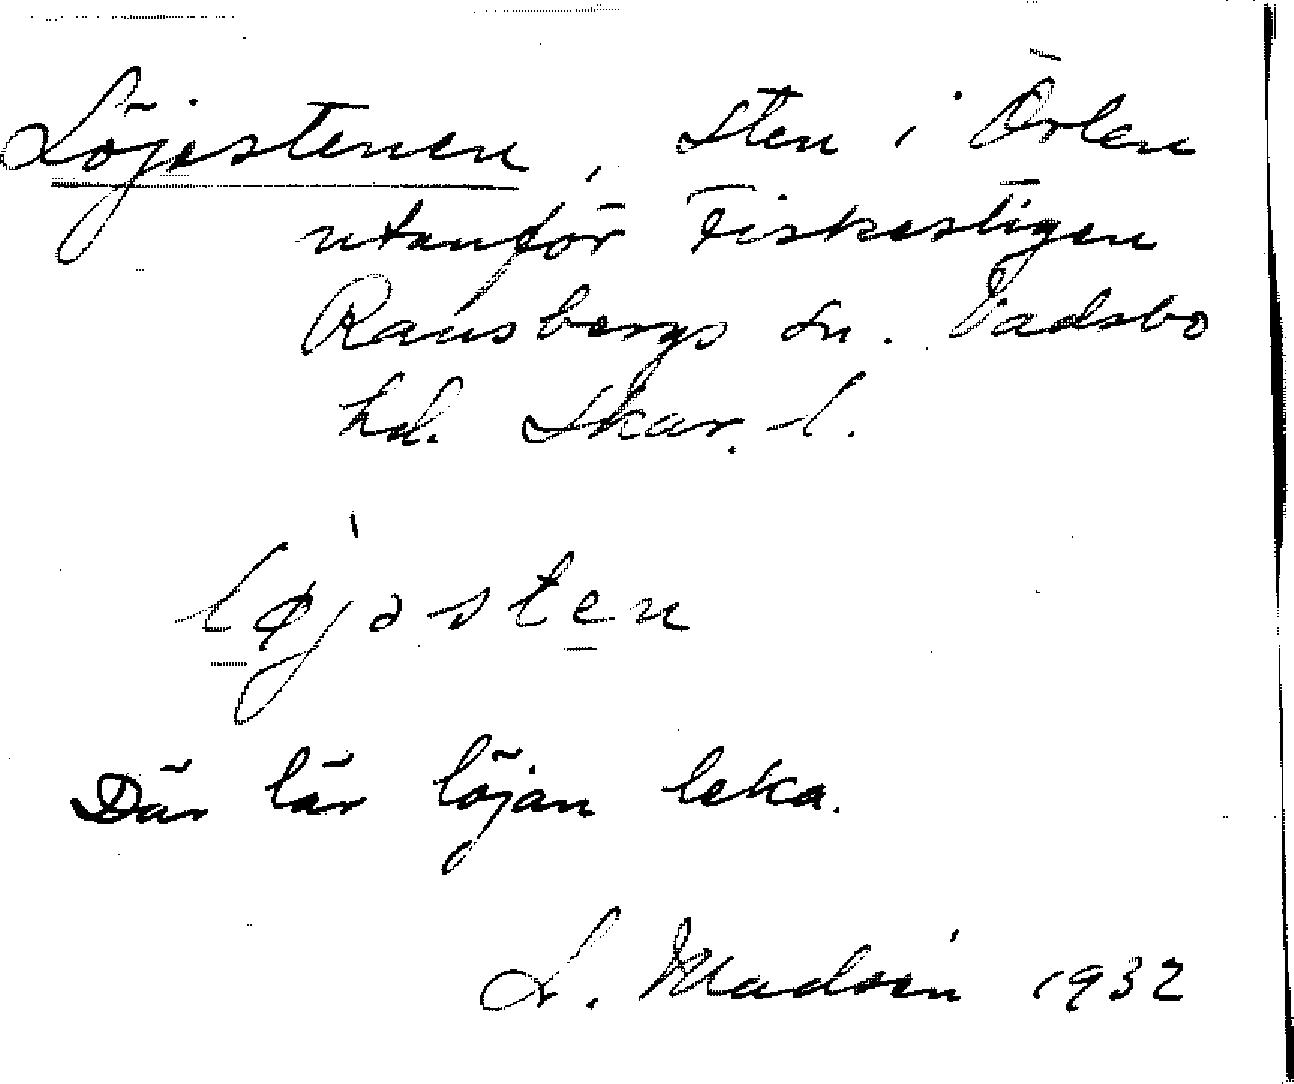 Löjestenen, sten i Örlen
utanför Fiskestigen
Ransbergs sn. Vadsbo
hd. Skar. l.
lø̀jəsten
Där lär löjan leka.
L. Madsén 1932